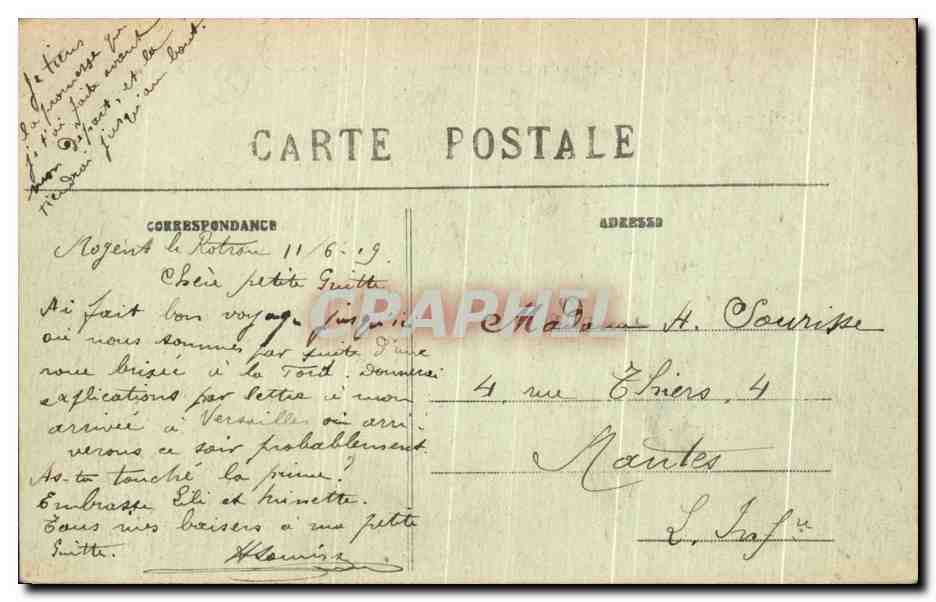 Je tiens
la promesse que
je t'ai faite avant
mon départ, et la
tiendrai jusqu'au bout.
CARTE POSTALE
CORRESPONDANCE
ADRESSE
Nogent le Rotrou 11/6-19.
Chère petite Guitte
Ai fait bon voyage jusqu'ici
où nous sommes par suite d'une
roue brisée à la Ford. Donnerai
explications par lettre à mon
arrivée à Versailles où arri-
verons ce soir probablement.
As-tu touché la prime?
Embrasse Lili et
Tous mes baisers à ma petite
Guitte.
HSourisse
Madame H. Sourisse
4, rue Thiers, 4
Nantes
L. Infre
CPAPHIL